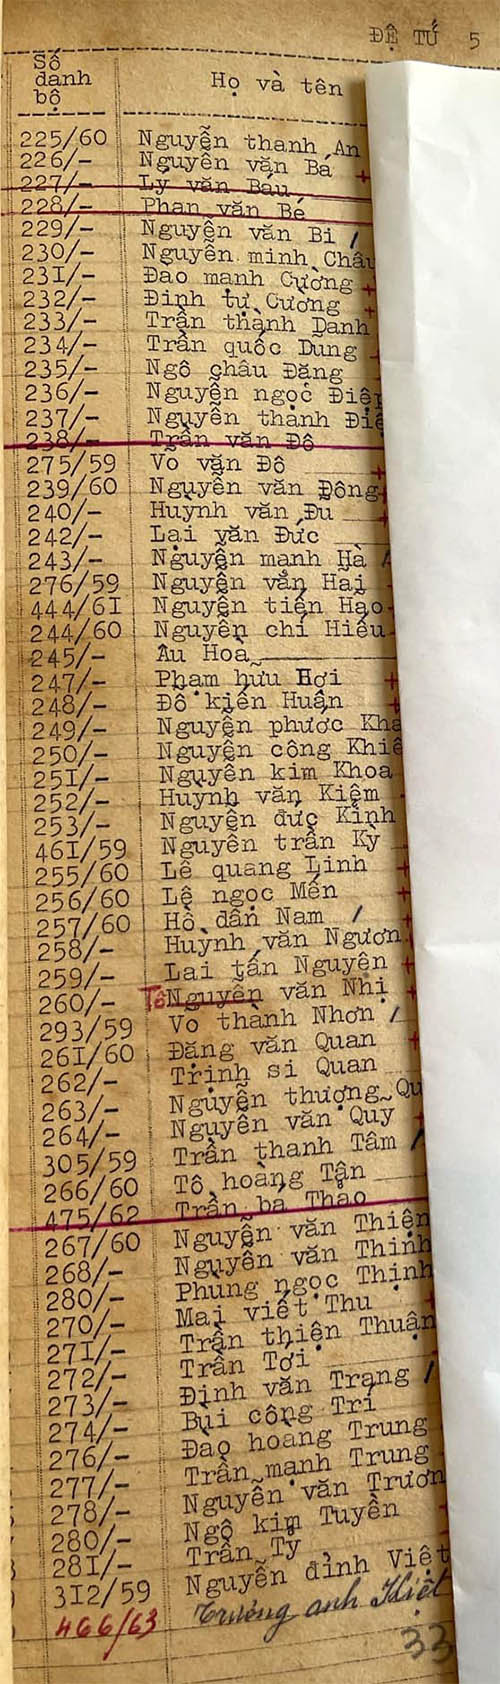 ĐỆ TỨ 5
Số danh bộ Họ và tên
225/60 Nguyễn thanh An
226/- Nguyễn văn Bá +
227/- Lý văn Báu
228/- Phan văn Bé
229/- Nguyễn văn Bi /
230/- Nguyễn minh Châu
231/- Đao mạnh Cường +
232/- Đinh tự Cương +
233/- Trần thành Danh
234/- Trần quốc Dũng
235/- Ngô châu Đăng
236/- Nguyễn ngọc Điệ
237/- Nguyễn thành Điể
238/- Trần văn Đô
275/59 Võ văn Đô
239/60 Nguyễn văn Đông
240/- Huỳnh văn Đủ
242/- Lại văn Đức
243/- Nguyễn mạnh Hà
276/59 Nguyễn văn Hai
444/61 Nguyễn tiến Hảo
244/60 Nguyễn chí Hiếu
245/- Âu Hoà
247/- Phạm hữu Hợi +
248/- Đỗ kiến Huân
249/- Nguyễn phước Kha
250/- Nguyễn công Khiê
251/- Nguyễn kim Khoa
252/- Huỳnh văn Kiêm
253/- Nguyễn đức Kỉnh
461/59 Nguyễn trần Kỳ
255/60 Lê quang Linh
256/60 Lê ngọc Mến
257/60 Hồ dần Nam /
258/- Huỳnh văn Ngươn
259/- Lai tấn Nguyện +
260/- Tô Nguyễn văn Nhị
293/59 Vo thành Nhơn /
261/60 Đặng văn Quan +
262/- Trịnh si Quan
263/- Nguyễn thượng Qu
264/- Nguyễn văn Quy
305/59 Trần thanh Tâm /
266/60 Tô hoàng Tân
475/62 Trần bá Thảo
267/60 Nguyễn văn Thiện
268/- Nguyễn văn Thinh
280/- Phùng ngọc Thịnh
270/- Mai viết Thu
271/- Trần thiện Thuận
272/- Trần Tới
273/- Định văn Trang /
274/- Bùi công Trí
276/- Đào hoàng Trung
277/- Trần mạnh Trung
278/- Nguyễn văn Trươn
280/- Ngô kim Tuyền
281/- Trần Tỷ
312/59 Nguyễn đình Việt
466/63 Trương anh Kiệt
33